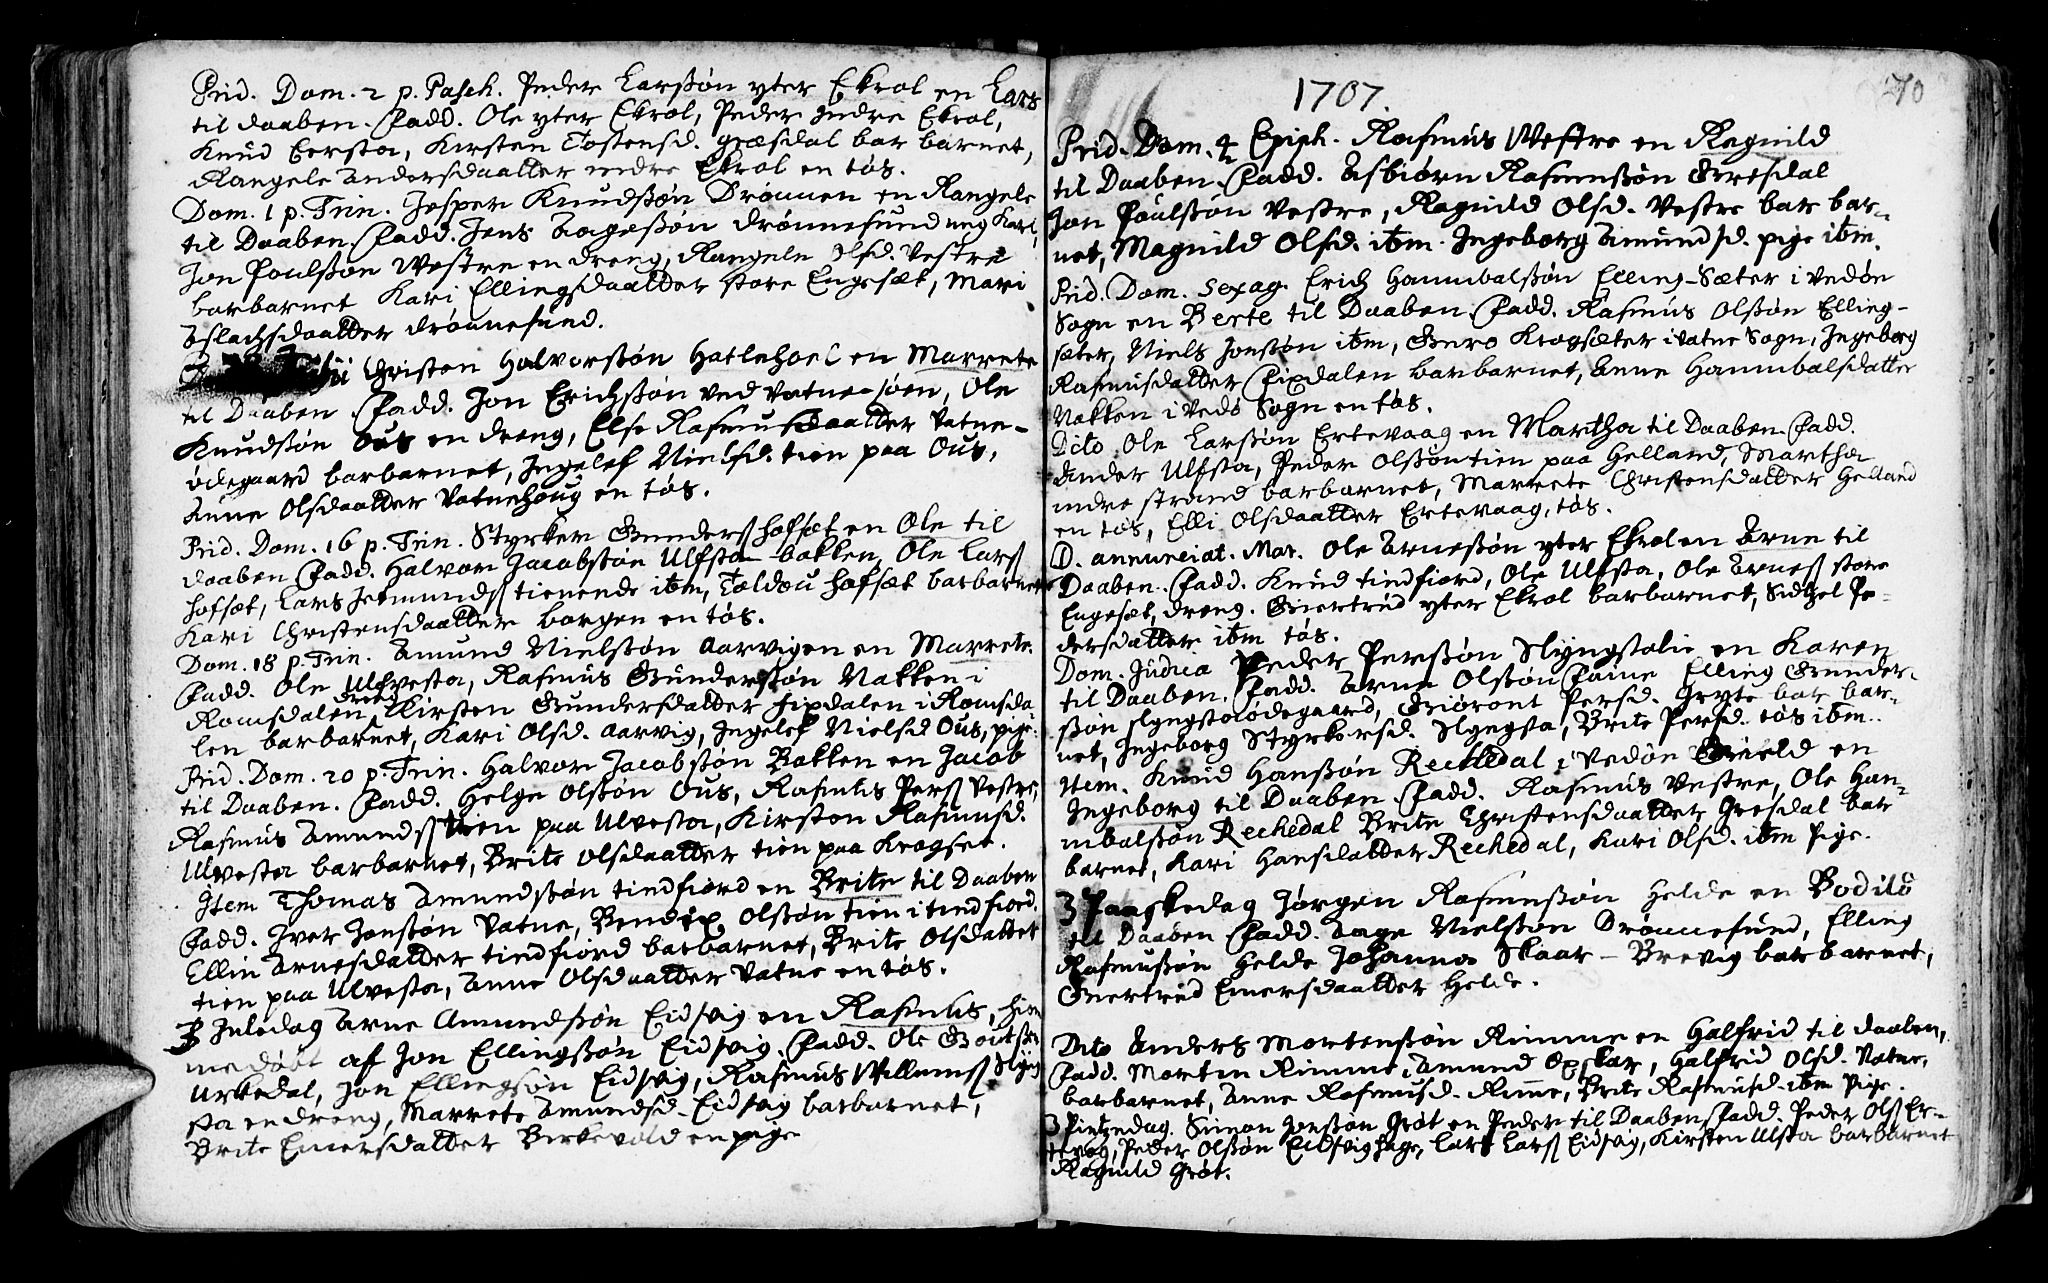 Prid. Dom. 2 p. Pasch. Peder Larssøn yter Ekrol en Lars
til daaben. Fadd. Ole yter Ekrol, Peder Indre Ekrol,
Knud Eersta, Kirsten Tostensd. græsdal bar barnet,
Rangele Andersdaatter indre Ekrol en tøs.
Dom. 1 p. Trin. Jesper Knudssøn Drønnen en Rangele
til Daaben. Fadd. Jens Aagessøn Drønnesund ung Karl,
Jon Poulssøn Westre en dreng, Rangele Olsd. Vestre
barbarnet Kari Ellingsdaatter store Engesæt, Mari
Aslachsdaatter drønnesund.
Christen Halvorssøn Hatlehoel en Marrete
til Daaben. Fadd. Jon Erichssøn ved Vatne-søen, Ole
Knudssøn Ous en dreng, Else Rasmusdaatter Vatne-
ødegaard barbarnet, Ingelef Nielsd. tien paa Ous,
Anne Olsdaatter Vatnehoug en tøs.
Prid. Dom. 16 p. Trin. Styrker Gunderss hofsæt en Ole til
daaben Fadd. Halvor Jacobssøn Ulfsta-bakken, Ole Larss
hofsæt, Lars Jetmundss tienende ibm, hofsæt barbarnet
Kari Christensdaatter borgen en tøs.
Dom. 18 p. Trin. Amund Nielssøn Aarvigen en Marrete.
Fadd. Ole Ulfvesta, Rasmus Gunderssøn Nakken i
Romsdalen dreng, Kirsten Gundersdatter fixdalen i Romsda
len barbarnet, Kari Olsd. Aarvig, Ingelef Nielsd Ous, pige.
Prid. Dom. 20 p. Trin. Halvor Jacobssøn Bakken en Jacob
til Daaben. Fadd. Helge Olssøn Ous, Rasmus Perss Vestre,
Rasmus Amundss tien paa Ulvesta, Kirsten Rasmusd.
Ulvesta barbarnet, Brite Olsdaatter tien paa Krogset.
Item Thomas Amundssøn tindfiord en Brite til Daaben
Fadd. Iver Jonssøn Vatne, Bendix Olssøn tien i tindfiord.
Ellin Arnesdatter tindfiord barbarnet, Brite Olsdatter
tien paa Ulvesta, Anne Olsdaatter Vatne en tøs.
3 Juledag Arne Amundssøn Eidsvig en Rasmus, hiem
medøbt af Jon Ellingssøn Eidsvig. Fadd. Ole
Urkedal, Jon Ellingsøn Eidsvig, Rasmus Willumss Slyng
sta en dreng, Marrete Amundsd. Eidsvig barbarnet,
Brite Emersdatter Birkevold en pige
1707.
70
Prid. Dom. 4 Epiph. Rasmus Westre en Ragnild
til Daaben. Fadd. Asbiørn Rasmussøn Gresdal
Jon Poulssøn Vestre, Ragnild Olsd. Vestre bar bar-
net, Magnild Olsd. ibm. Ingeborg Amundsd. pige ibm.
Prid. Dom. Sexag. Erich Hannibalssøn Elling-Sæter i Vedøn
Sogn en Berte til Daaben. Fadd. Rasmus Olssøn Elling-
sæter, Niels Jonssøn ibm, Guro Krogsæter i Vatne Sogn, Ingeborg
Rasmusdatter Fixdalen barbarnet, Anne Hannibalsdatter
Nakken i Vedø Sogn en tøs.
Dito Ole Larssøn Ertevaag en Martha til Daaben. Fadd.
Ander Ulfsta, Peder Olssøn tien paa Helland, Martha
indre strand barbarnet, Marrete Christensdatter Helland
en tøs, Elli Olsdaatter Ertevaag, tøs.
D. annunciat. Mar. Ole Arnessøn yter Ekrol en Arne til
Daaben. Fadd. Knud tindfiord, Ole Ulfsta, Ole Arness store
Engesæt, dreng. Giertrud yter Ekrol barbarnet, Sidzel Pe-
dersdatter ibm tøs.
Dom. Judica Peder Perssøn Slyngstolie en Karen
til Daaben. Fadd. Arne Olssøn Elling Gunder-
søn slyngstaødegaard, Giøront Persd. Gryte bar bar-
net, Ingeborg Styrkersd. Slyngsta, Brite Persd. tøs ibm.
Item. Knud Hanssøn Rechedal i Vedøn Gield en
Ingeborg til Daaben. Fadd. Rasmus Vestre, Ole Han-
nibalssøn Rechedal Brite Christensdaatter Gresdal bar
barnet, Kari Hansdatter Rechedal, Kari Olsd. ibm Pige.
3 Paaskedag Jørgen Rasmussøn Helde en Bodild
til Daaben. Fadd. Aage Nielssøn Drønnesund, Elling
Rasmussøn Helde Johanna Skaar-Brevig bar barnet,
Giertrud Emersdaatter Helde.
Dito Anders Mortenssøn Rimme en Halfrid til daaben,
Fadd. Morten Rimme, Amund Oxskar, Halfrid Olsd. Vatne,
barbarnet, Anne Rasmusd. Rime, Brite Rasmusd. ibm Pige.
3 Pintzedag. Simon Jonssøn Grøt en Peder til Daaben, Fadd. Peder Olss Er-
tevog, Peder Olssøn Eidsvighage, Lars Larss Eidsvig, Kirsten Ulsta barbarnet
Ragnild Grøt.